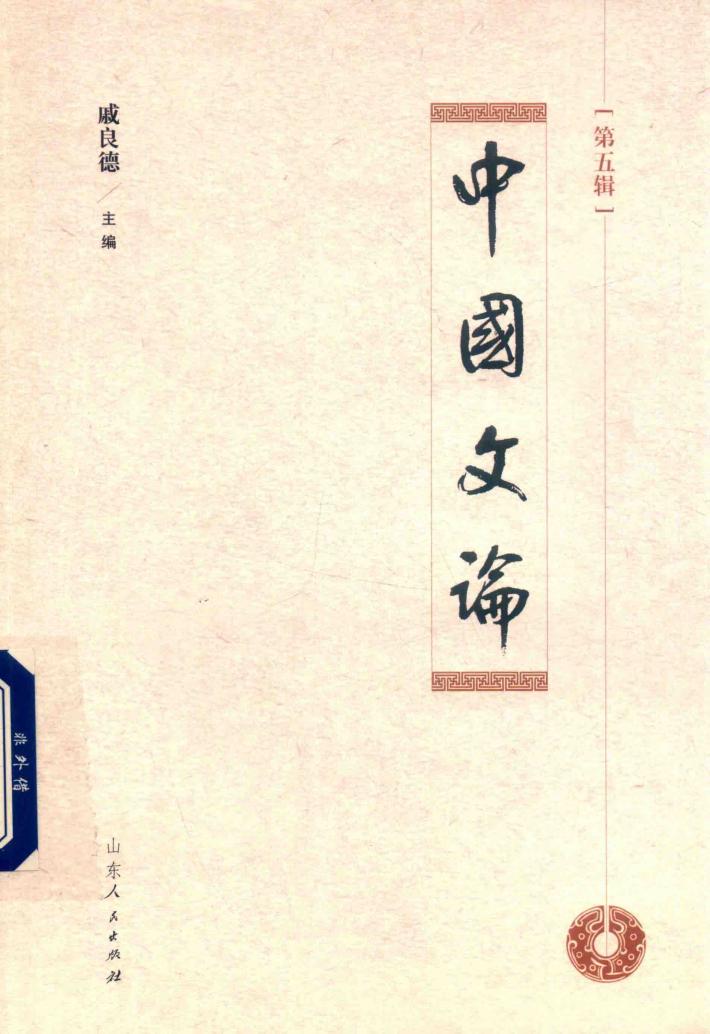 [第五辑]
中國文論
戚良德／主编
山东人民出版社
非外借